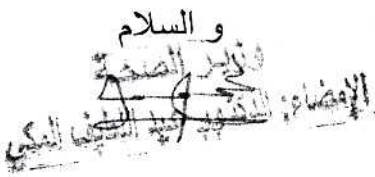 و السلام
وزير الصحة
الإمضاء: الدكتور عبد اللطيف المكي